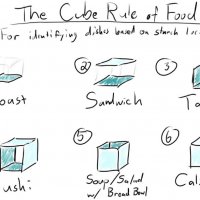 The Cube Rule of Food
For identifying dishes based on starch loc
② ③
oast Sandwich Ta
ushi ⑤ ⑥
Soup/Salad Cal
w/ Bread Bowl